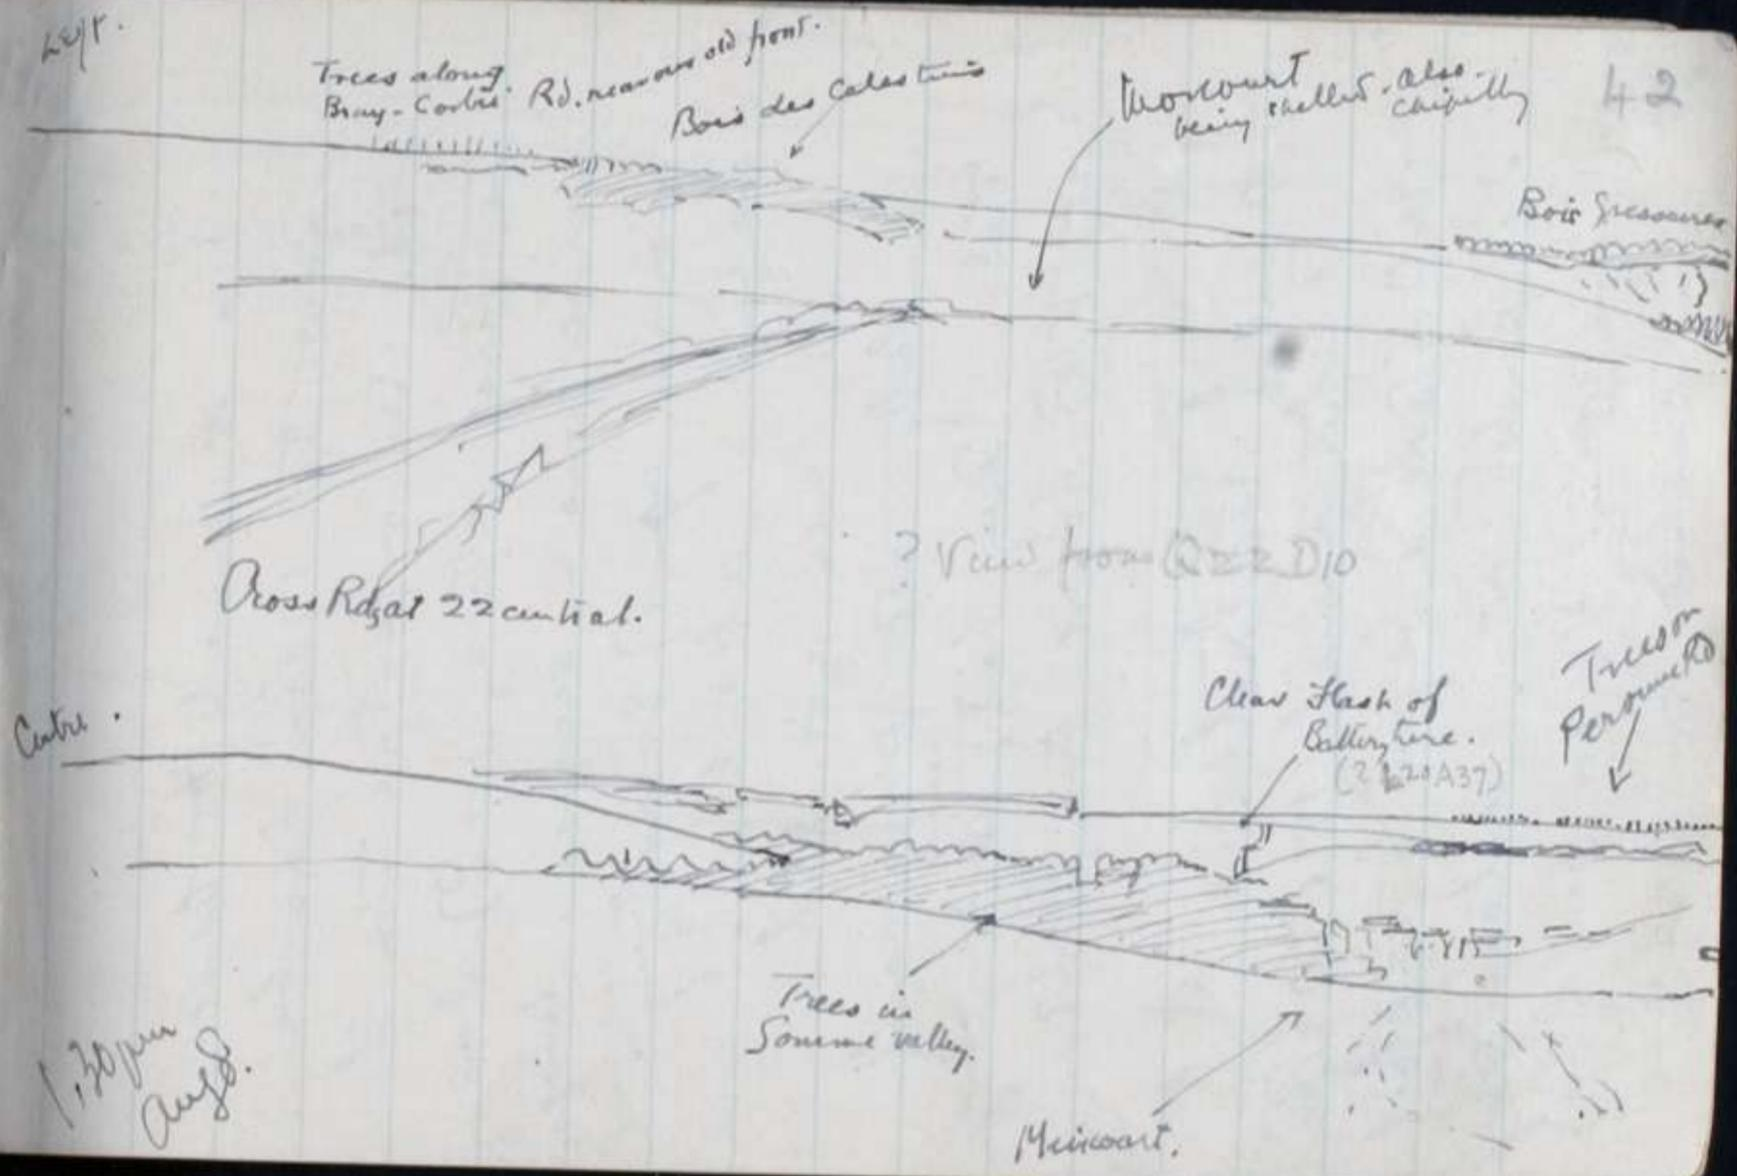 Left.
42
Trees along
Bray-Corbie Rd. near our old front.
Bois des Celestins
Morcourt
being shelled. also
chipilly
Bois Gressaires
? View from Q22D10
Cross Rds at 22 central.
Centre.
Clear Flash of
Battery here.
20A37)
Trees on
Peronne Rd
Trees in
Somme valley.
1.30 pm
Aug 8.